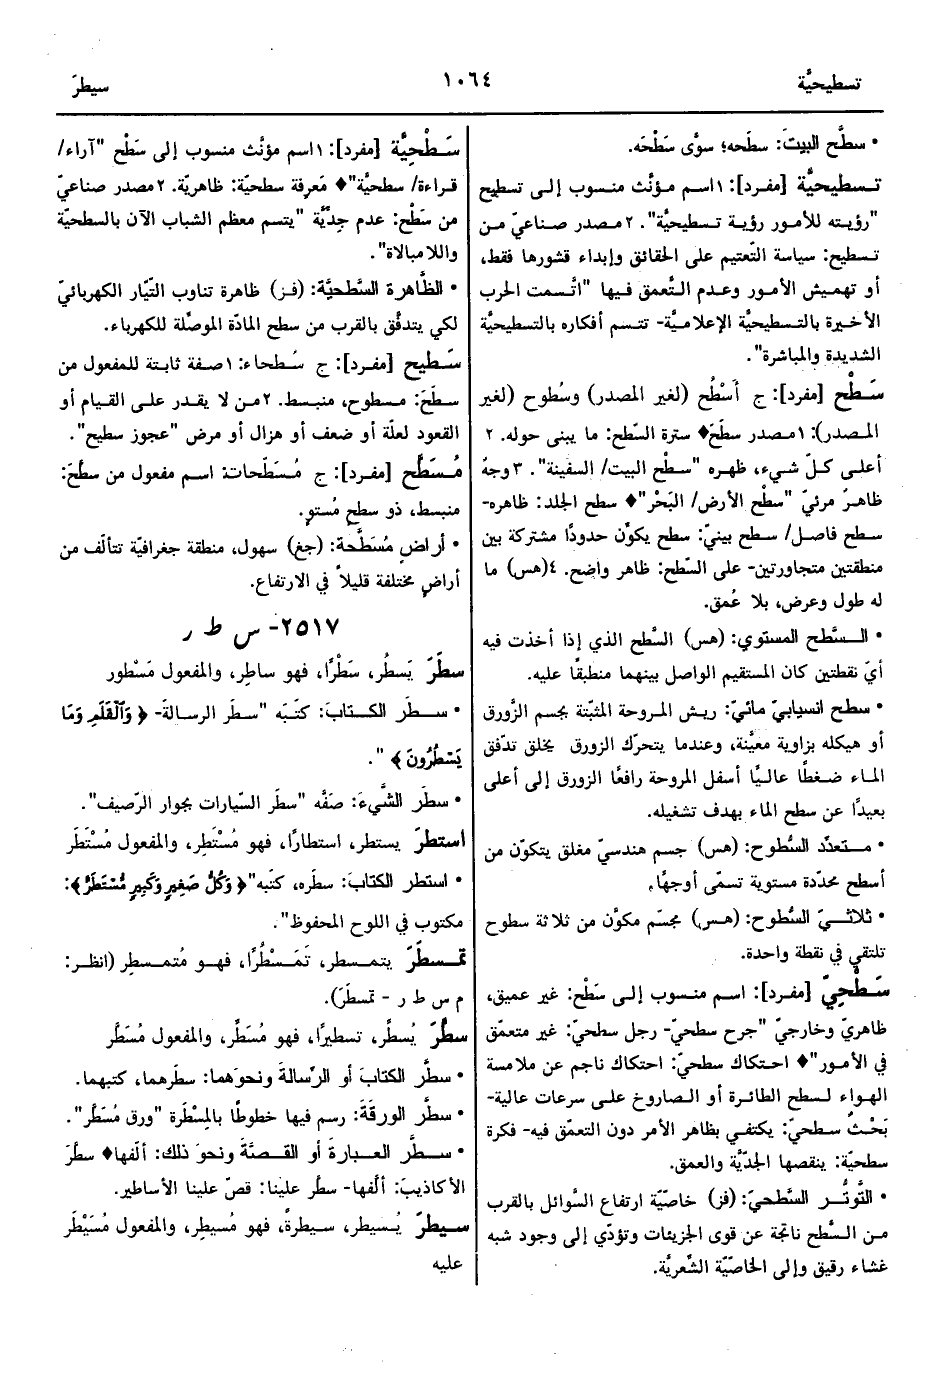 تسطيحيَّة
١٠٦٤
سيطرَ
• سطَّح البيتَ: سطَحه؛ سوَّى سَطْحَه.
تـسطيحيَّة [مفرد]: ١ اسـم مـؤنَّث منـسوب إلـى تسطيح
"رؤيـته للأمـور رؤيـة تـسطيحيَّة". ٢ مـصدر صـناعيّ مـن
تـسطيح: سياسة التَّعتيم على الحقائق وإبداء قشورها فقط،
أو تهميش الأمـور وعـدم التَّعمق فـيها "اتَّسمت الحرب
الأخـيرة بالتـسطيحيَّة الإعلاميَّة- تتـسم أفكاره بالتَّسطيحيَّة
الشديدة والمباشرة".
سَـطْح [مفرد]: ج أَسْطُح (لغير المصدر) وسُطوح (لغير
المـصدر): ١ مـصدر سطَحَ♦ سترة السَّطح: ما يبنى حوله. ٢
أعلى كـلّ شيء، ظهره "سطْح البيت/ السفينة". ٣ وجهٌ
ظاهرٌ مرئيّ "سطْح الأرض/ البَحْر"♦ سطح الجلد: ظاهره-
سـطح فاصـل/ سـطح بينيّ: سطح يكوِّن حدودًا مشتركة بين
منطقتين متجاورتين- على السَّطح: ظاهر واضح. ٤ (هس) ما
له طول وعرض، بلا عُمق.
• الـسَّطح المستوي: (هس) السَّطح الذي إذا أخذت فيه
أيّ نقطتين كان المستقيم الواصل بينهما منطبقًا عليه.
• سـطح انسيابيّ مائيّ: ريش المـروحة المثبَّتة بجسم الزَّورق
أو هيكله بزاوية معيَّنة، وعندما يتحرّك الزورق يخلق تدفّق
المـاء ضـغطًا عاليًّا أسفل المروحة رافعًا الزورق إلى أعلى
بعيدًا عن سطح الماء بهدف تشغيله.
• مـتعدِّد السُّطوح: (هس) جسم هندسيّ مغلق يتكوّن من
أسطح محدّدة مستوية تسمّى أوجهًا.
• ثلاثـيّ السُّطوح: (هـس) مجسّم مكوَّن من ثلاثة سطوح
تلتقي في نقطة واحدة.
سَـطْحِيّ [مفرد]: اسـم منـسوب إلـى سَطْح: غير عميق،
ظاهريّ وخارجيّ "جرح سطحيّ- رجل سطحيّ: غير متعمّق
في الأمـور"♦ احـتكاك سـطحيّ: احتكاك ناجم عن ملامسة
الهـواء لـسطح الطائـرة أو الـصاروخ علـى سـرعات عالـية-
بَحْثٌ سـطحيّ: يكتفي بظاهر الأمر دون التعمّق فيه- فكرة
سطحيّة: ينقصها الجدّيَّة والعمق.
• التَّوتُّـر السَّطحيّ: (فز) خاصّيّة ارتفاع السَّوائل بالقرب
مـن الـسَّطح ناتجة عن قوى الجزيئات وتؤدّي إلى وجود شبه
غشاء رقيق وإلى الخاصّيّة الشّعريَّة.
سَـطْحِيَّة [مفرد]: ١ اسـم مـؤنَّث منـسوب إلـى سَطْح "آراء/
قـراءة/ سطحيَّة"♦ مَعرِفة سطحيّة: ظاهريّة. ٢ مصدر صناعيّ
من سَطْح: عدم جدِّيَّة "يتسم معظم الشباب الآن بالسطحيّة
واللامبالاة".
• الظَّاهرة السَّطحيَّة: (فـز) ظاهرة تناوب التيّار الكهربائيّ
لكي يتدفَّق بالقرب من سطح المادّة الموصِّلة للكهرباء.
سَـطيح [مفرد]: ج سُـطحاء: ١ صفة ثابتة للمفعول من
سـطَحَ: مـسطوح، منبسط. ٢ مَن لا يقدر على القيام أو
القعود لعلّة أو ضعف أو هزال أو مرض "عجوز سطيح".
مُـسَطَّح [مفرد]: ج مُـسَطّحات: اسـم مفعول من سطَّحَ:
منبسط، ذو سطحٍ مُستوٍ.
• أراضٍ مُسَطَّحة: (جغ) سهول، منطقة جغرافيّة تتألّف من
أراضٍ مختلفة قليلاً في الارتفاع.
٢٥١٧- س ط ر
سطَرَ يَسطُر، سَطْرًا، فهو ساطِر، والمفعول مَسْطور
• سـطَر الكـتابَ: كـتَبَه "سطَر الرسالةَ- ﴿ وَٱلْقَلَمِ وَمَا
يَسْطُرُونَ ﴾ ".
• سطَر الشَّيءَ: صَفَّه "سطَر السَّيارات بجوار الرَّصيف".
استطرَ يستطر، استطارًا، فهو مُسْتَطِر، والمفعول مُسْتَطَر
• استطر الكتابَ: سطَره، كتَبه "﴿ وَكُلُّ صَغِيرٍ وَكَبِيرٍ مُّسْتَطَرٌ ﴾:
مكتوب في اللوح المحفوظ".
تمـسطرَ يتمـسطر، تَمَـسْطُرًا، فهـو مُتمـسطِر (انظـر:
م س ط ر - تمسطرَ).
سطَّرَ يُسطِّر، تسطيرًا، فهو مُسَطِّر، والمفعول مُسَطَّر
• سطَّر الكتابَ أو الرِّسالةَ ونحوَهما: سطَرهما، كتبهما.
• سطَّر الورقةَ: رسم فيها خطوطًا بالمِسْطَرة "ورق مُسَطَّر".
• سـطَّر العـبارةَ أو القـصَّةَ ونحوَ ذلك: ألّفها♦ سطَّرَ
الأكاذيبَ: ألّفها- سطَّر علينا: قصّ علينا الأساطير.
سـيطرَ يُـسيطر، سيطرةً، فهو مُسيطِر، والمفعول مُسَيْطَر
عليه